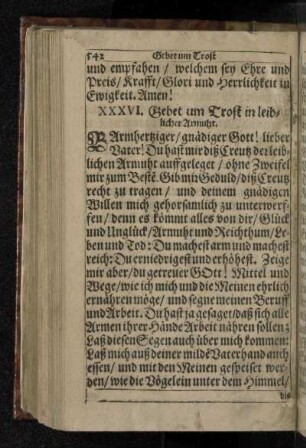 542 Gebet um Trost
und empfahen / welchem sey Ehre und
Preis / Krafft / Glori und Herrlichkeit in
Ewigkeit. Amen!
XXXVI. Gebet um Trost in leib-
licher Armuht.
BArmhertziger / gnädiger Gott! lieber
Vater! Du hast mir diß Creutz der leib-
lichen Armuht auffgeleget / ohne Zweifel
mir zum Beste. Gib mir Geduld / diß Creutz
recht zu tragen / und deinem gnädigen
Willen mich gehorsamlich zu unterwerf-
fen / denn es kömt alles von dir / Glück
und Unglück / Armuht und Reichthum / Le-
ben und Tod: Du machest arm und machest
reich: Du erniedrigest und erhöhest. Zeige
mir aber / du getreuer GOtt! Mittel und
Wege / wie ich mich und die Meinen ehrlich
ernähren möge / und segne meinen Beruff
und Arbeit. Du hast ja gesaget / daß sich alle
Armen ihrer Hände Arbeit nähren sollen:
Laß diesen Segen auch über mich kommen:
Laß mich auß deiner milde Vaterhand auch
essen / und mit den Meinen gespeiset wer-
den / wie die Vögelein unter dem Himmel /
die